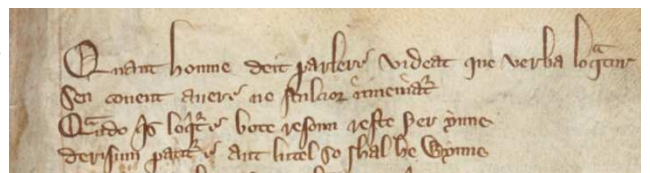 Quant homme deit parlere videat que verba loqatur
Sen covent avere ne stulcior inveniatr
Qando qis loqitr bote resoun reste þer ynne
derisum patitr aut lutel so shal he wynne